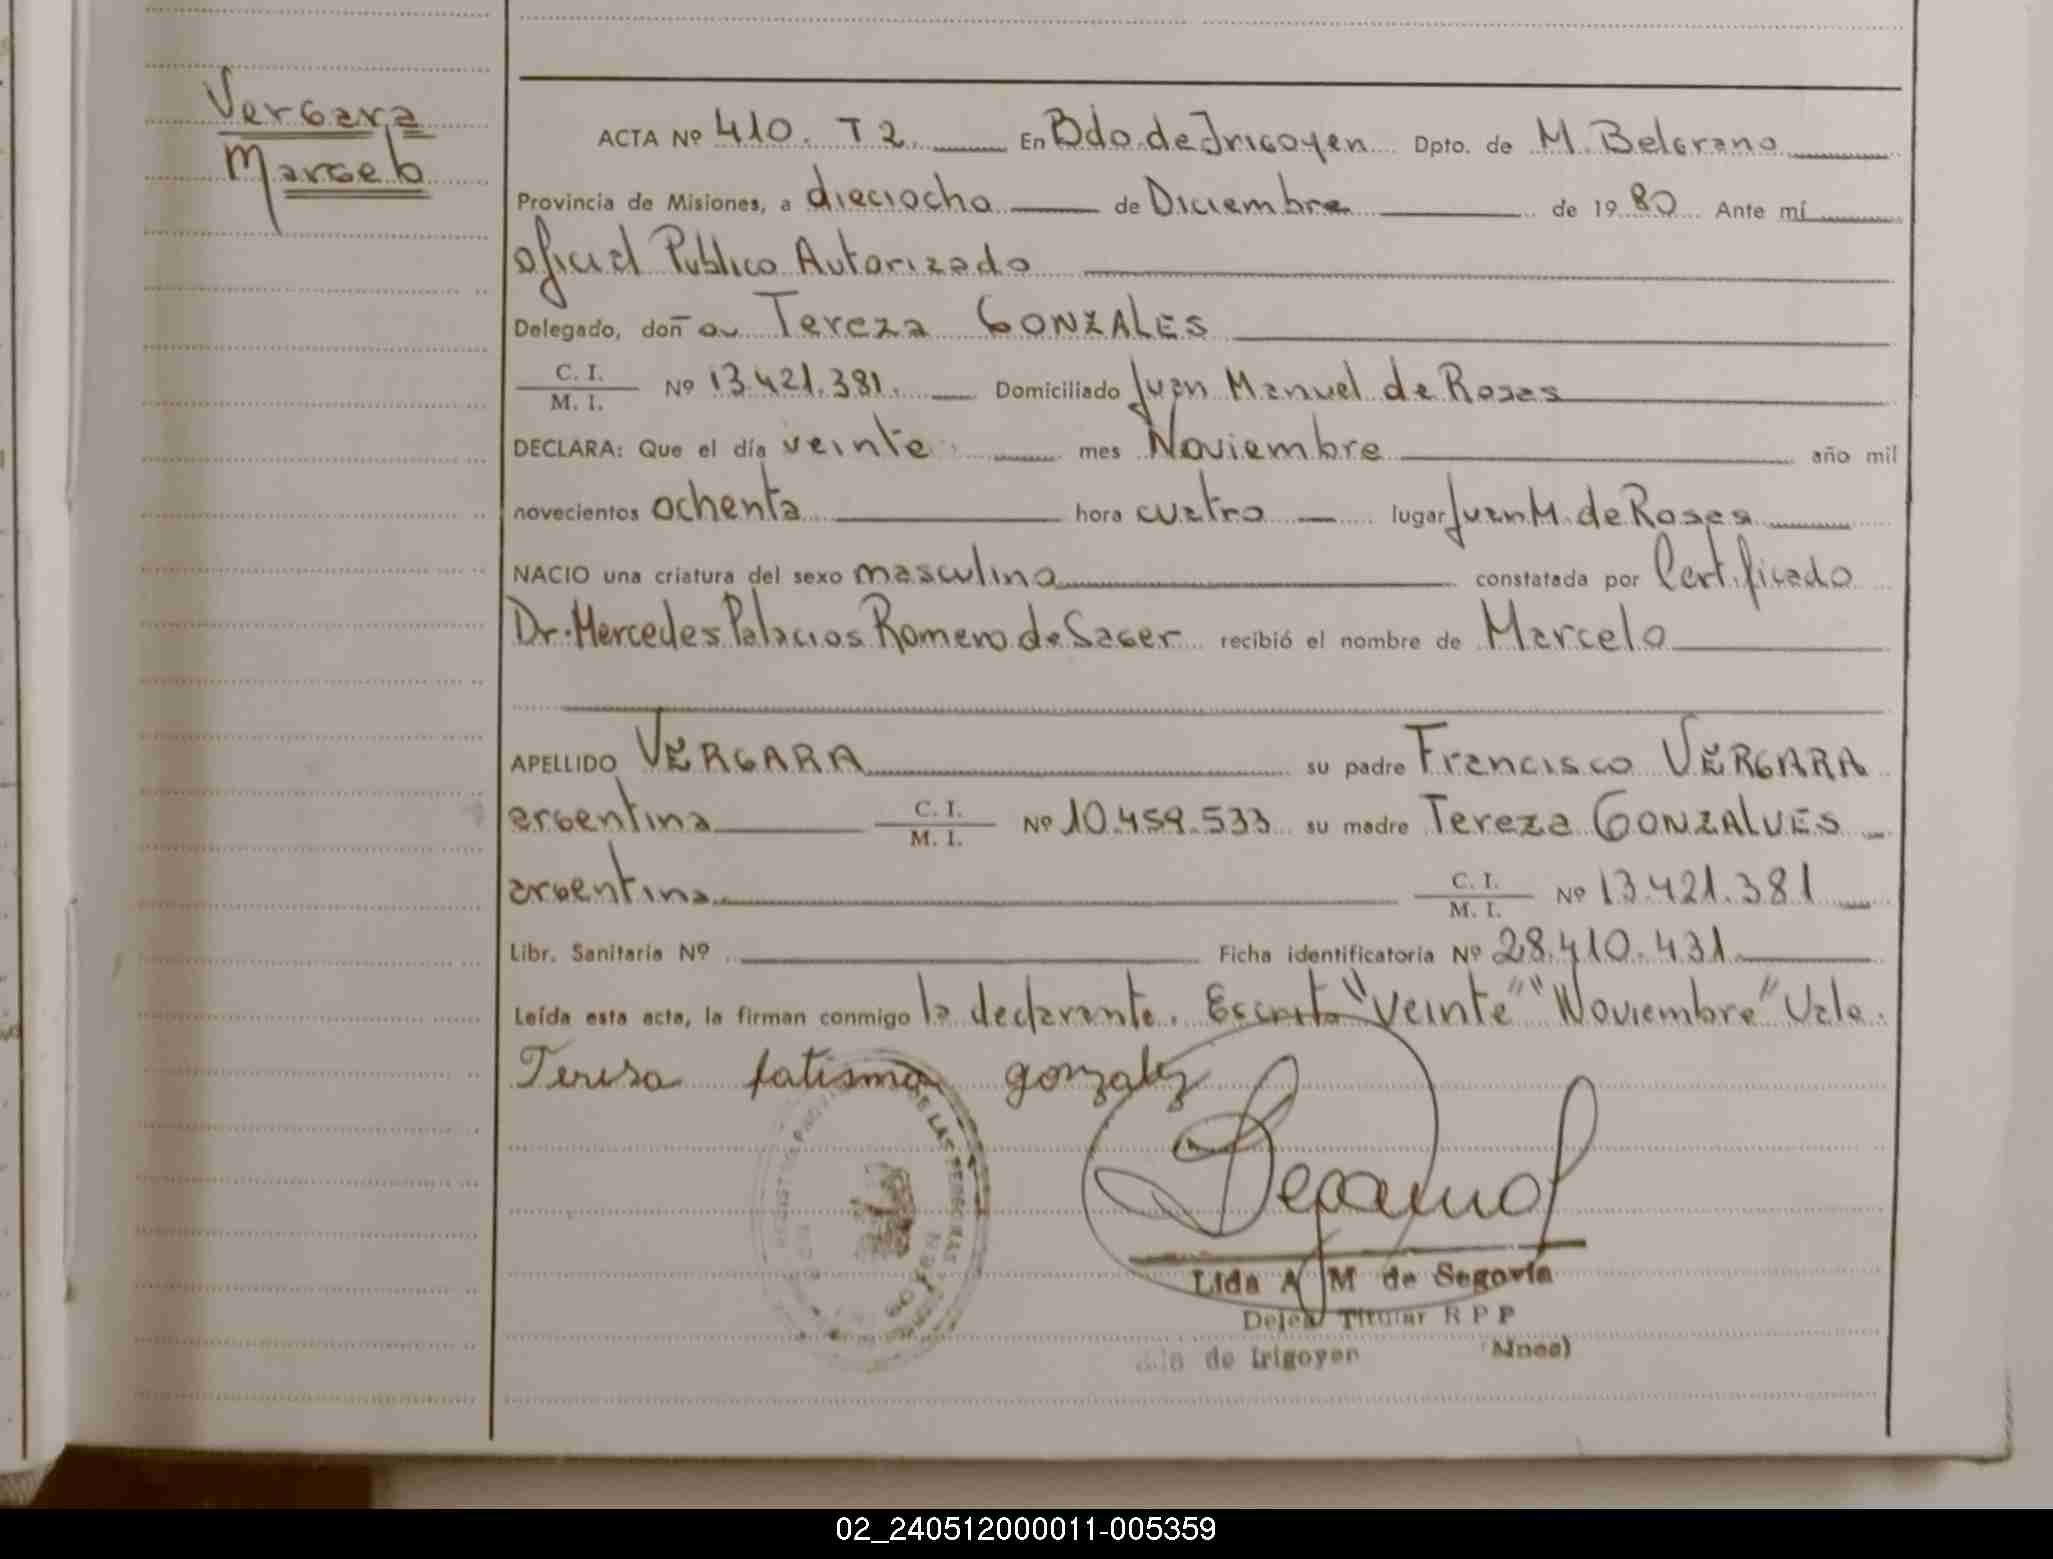 Vergara
Marcelo
ACTA Nº 410. T 2. En Bdo. de Irigoyen Dpto. de M. Belgrano
Provincia de Misiones, a dieciocho de Diciembre de 1980 Ante mí
Oficial Publico Autorizado
Delegado, doña Tereza GONZALES
C. I.
M. I. Nº 13.421.381. Domiciliado Juan Manuel de Rosas
DECLARA: Que el día veinte mes Noviembre año mil
novecientos ochenta hora cuatro lugar Juan M. de Rosas
NACIO una criatura del sexo masculino constatada por Certificado
Dr. Mercedes Palacios Romero de Sager recibió el nombre de Marcelo
APELLIDO VERGARA su padre Francisco VERGARA
argentina C. I.
M. I. Nº 10.459.533 su madre Tereza GONZALVES
argentina C. I.
M. I. Nº 13.421.381
Libr. Sanitaria Nº Ficha identificatoria Nº 28.410.431
Leída esta acta, la firman conmigo la declarante. Escrito "Veinte" "Noviembre" Vale.
Teresa fatisma gonzalez
DE LAS PERSONAS
Lida A M de Segovia
Deleg Titular R P P
de Irigoyen (Mnes)
02_240512000011-005359